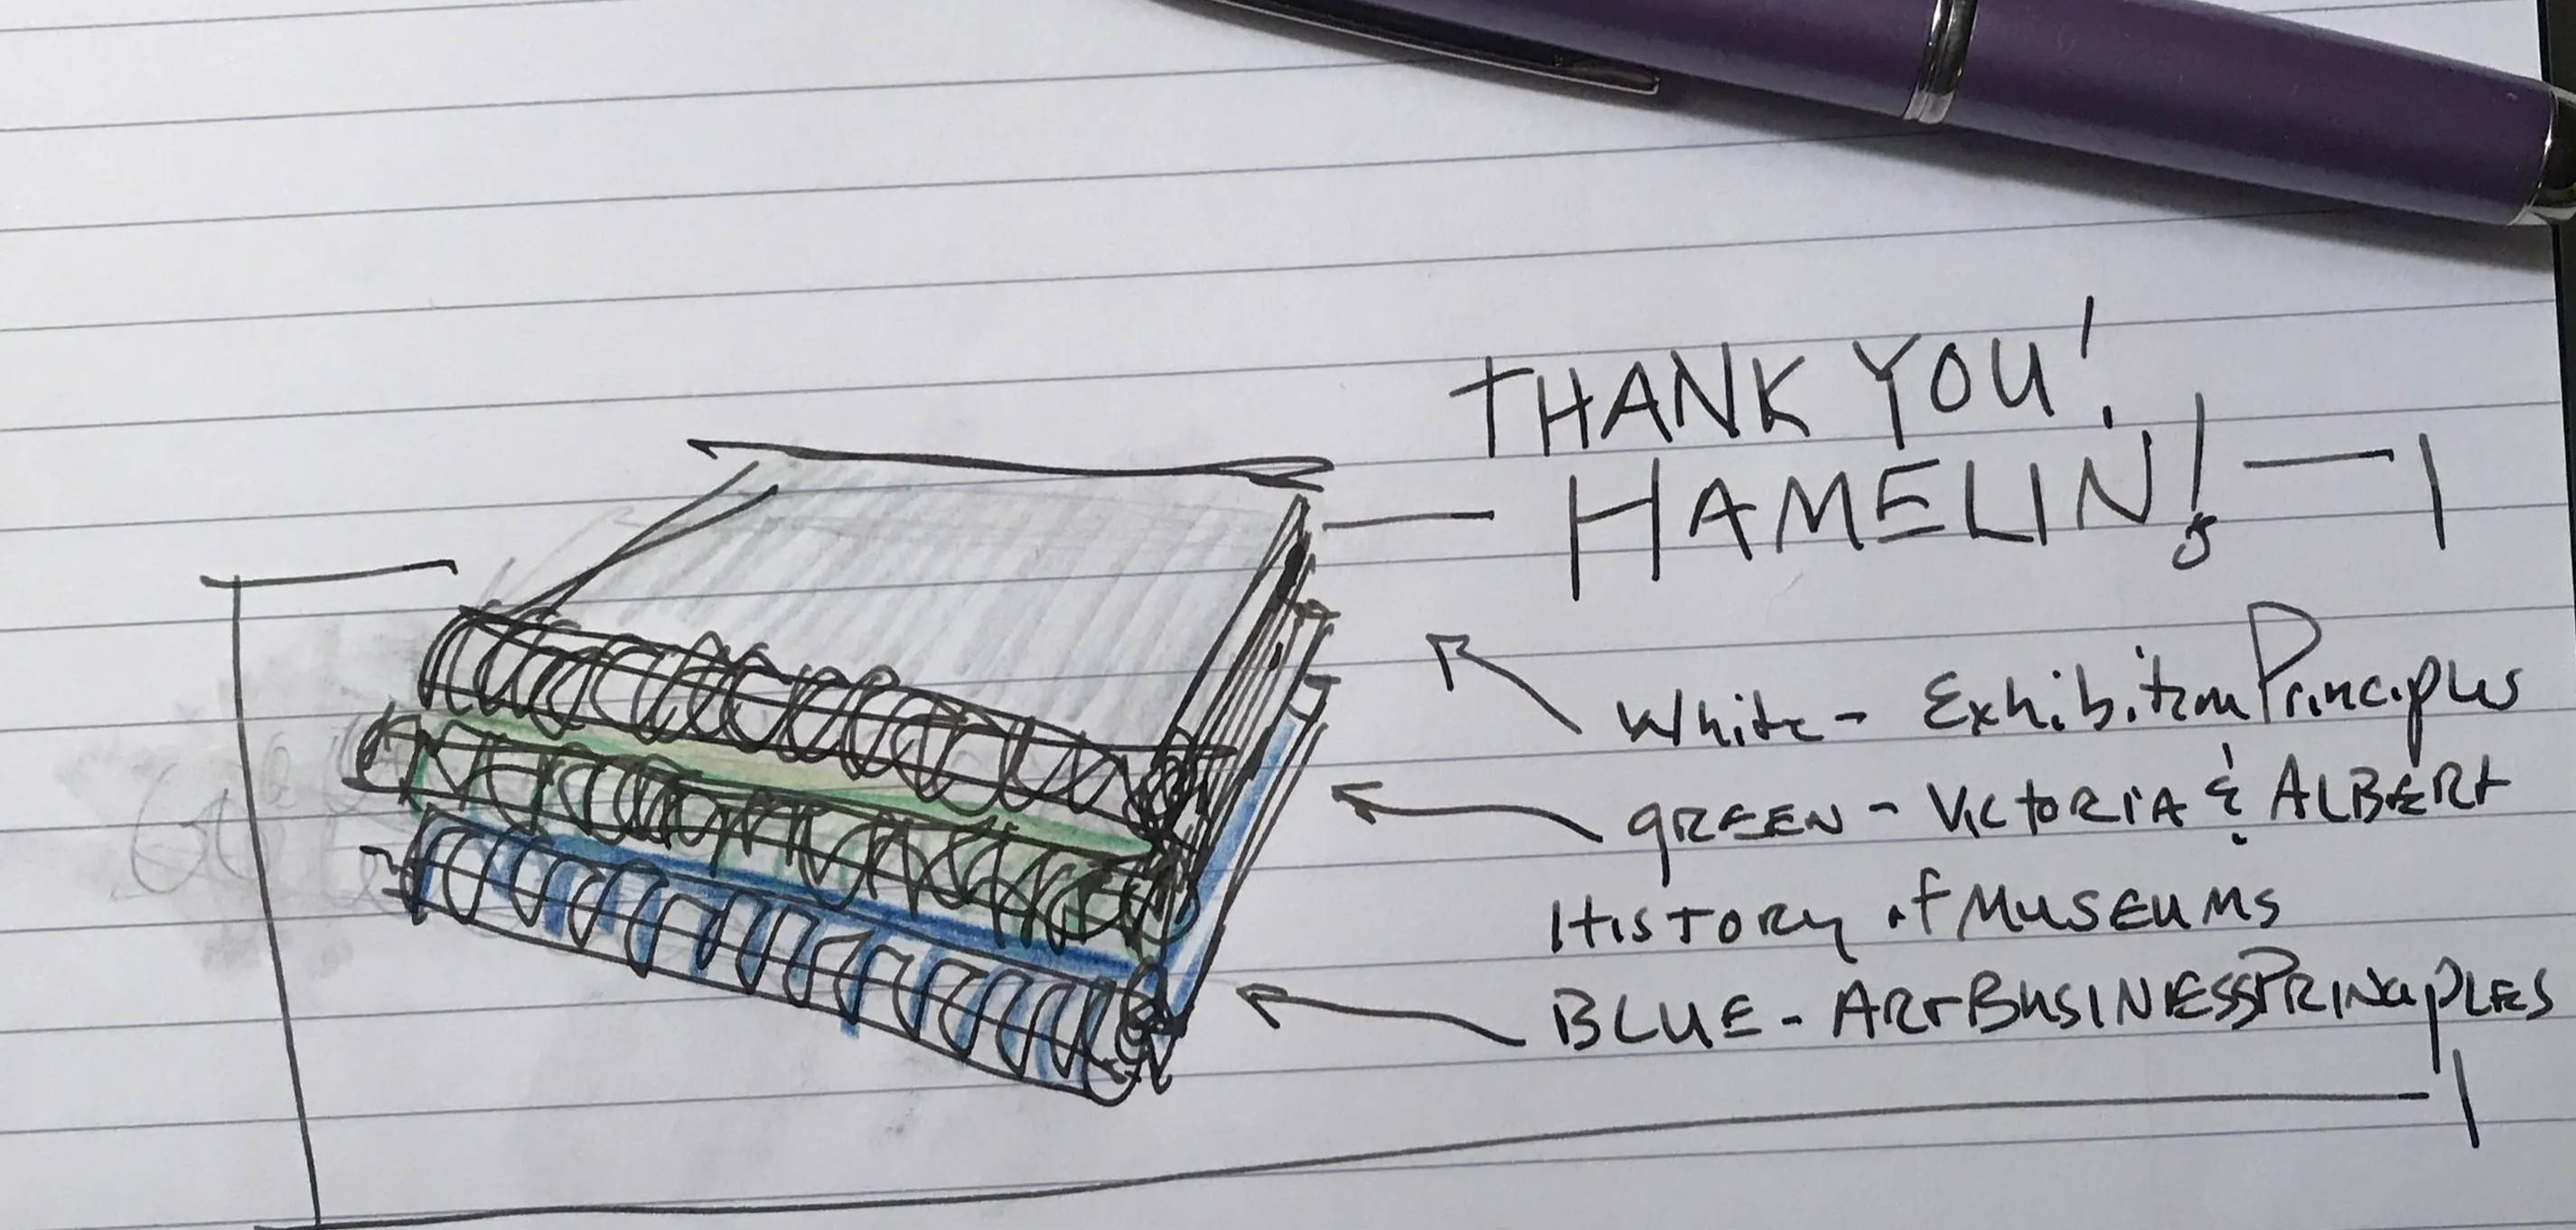 THANK YOU!
— HAMELIN! —
White - Exhibition Principles
GREEN - VICTORIA & ALBERT
HISTORY of MUSEUMS
BLUE - ART BUSINESS PRINCIPLES